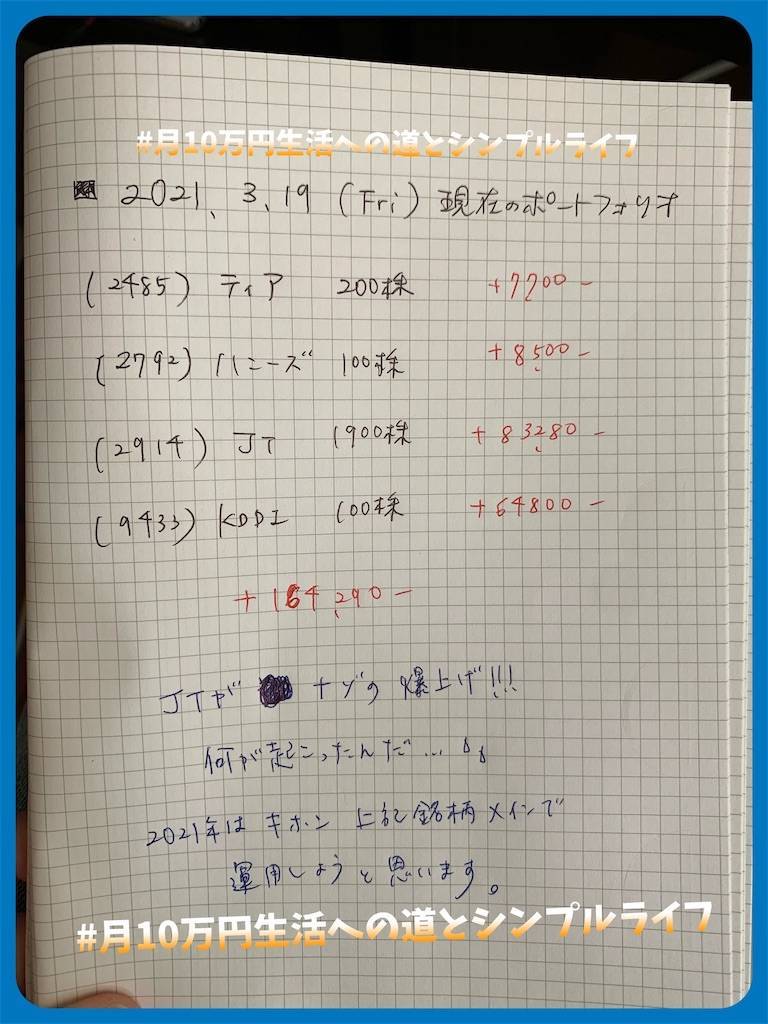 #月10万円生活への道とシンプルライフ
2021. 3. 19 (Fri) 現在のポートフォリオ
(2485) ティア 200株 +7700-
(2792) ハニーズ 100株 +8,500-
(2914) JT 1900株 +83,280-
(9433) KDDI 100株 +64800-
+164,290-
JTが ナゾの 爆上げ!!!
何が起こったんだ...
2021年は キホン 上記銘柄メインで
運用しようと思います。
#月10万円生活への道とシンプルライフ